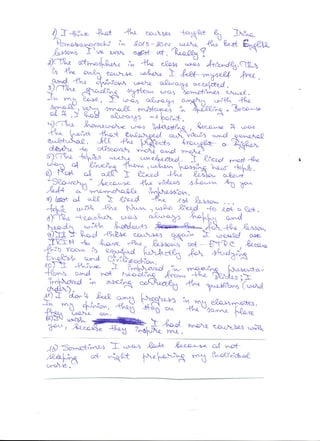 1) I think that the courses taught by Irina
Romanovschi in 2013-2014 were the best English
lessons I've ever at. Really?
2) The atmosphere in the class was friendly. This
is the only course where I felt myself free,
and the opinions were always accepted.
3) The grading system was sometimes cruel.
In my case, I was always angry with the
small, very small mistakes in spelling. Because
of it, I had always -1 point.
4) The homework was interesting, because it was
the point that enlarged our views and general
culture. All the projects brought a higher
desire to discover more and more.
5) The topics were unexpected. I liked most the
way of linking them, when passing new topic.
6) Most of all I liked the lesson about
"Slavery" because the videos shown by you
left a memorable impression.
7) Least of all I liked the lesson ...
with the , who liked to eat a lot.
8) The teacher was always happy and
ready with handouts for the lesson
9) If I had these courses again I would ask
IRIM to have the lessons at ETRC, because
this room is equipped perfectly for studying
English and Civilization.
10) I think I improved in making presenta-
tions and not reading from the slides; I
improved in asking correctly the questions (word
order).
11) I don't feel any progress in my classmates.
In my opinion, they stay on the same place
they were on.
12) I wish I had more courses with
you, because they inspire me.
13) Sometimes I was late because of not
sleeping at night preparing my individual
work.